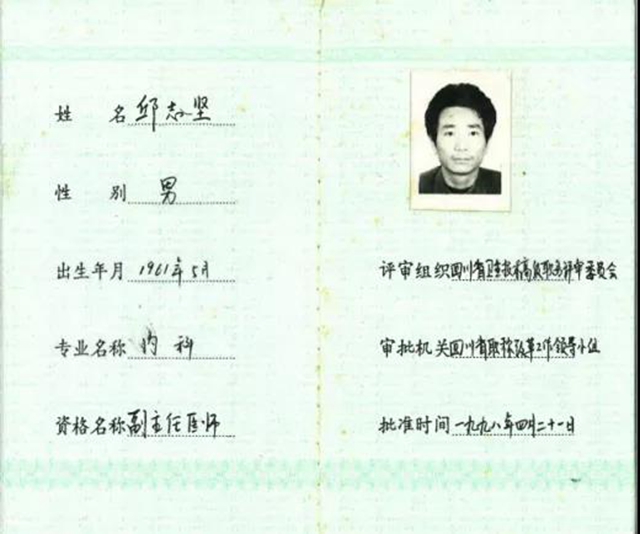 姓 名 邱志坚
性 别 男
出生年月 1961年5月
专业名称 内科
资格名称 副主任医师
评审组织 四川省卫生技术高级职务评审委员会
审批机关 四川省职称改革工作领导小组
批准时间 一九九八年四月二十一日